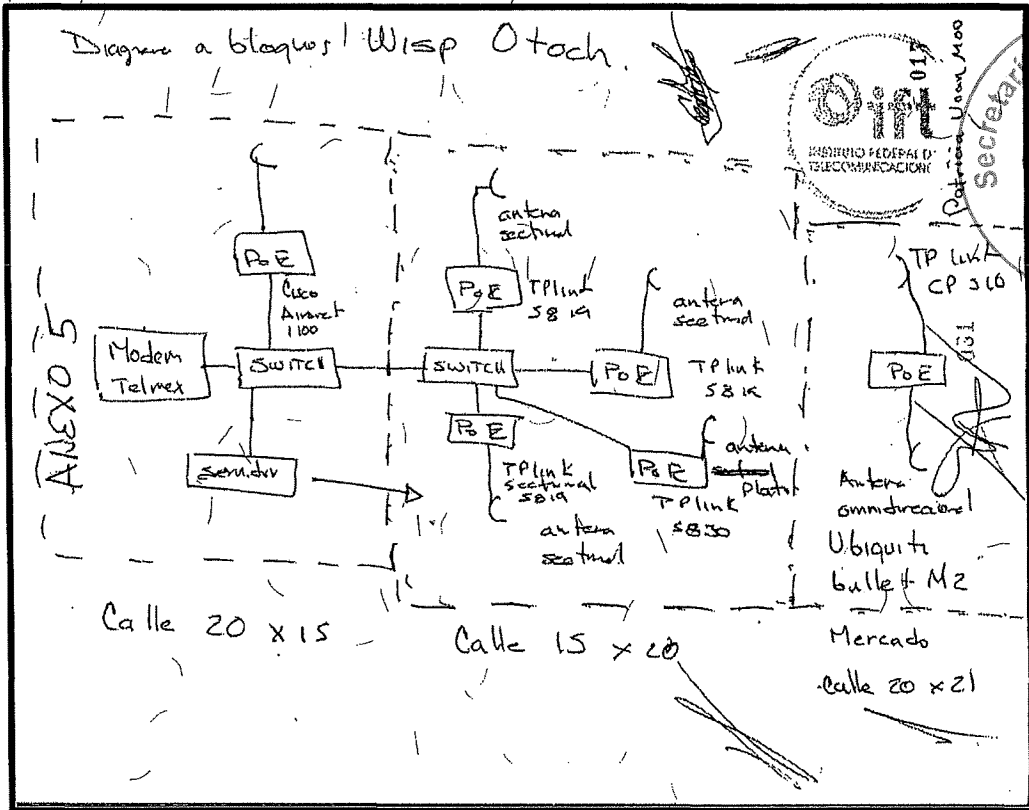 Diagrama a bloques! Wisp Otoch.
ift
017
INSTITUTO FEDERAL DE
TELECOMUNICACIONE
Patricia Moo
Secretarí
ANEXO 5
PoE
Cisco
Aironet
1100
Modem
Telmex
SWITCH
servidor
Calle 20 x 15
antena
sectorial
PoE
TPlink
5819
SWITCH
antena
sectorial
PoE
TPlink
5819
PoE
TPlink
sectorial
5819
antena
sectorial
PoE
antena
Plato
TPlink
5830
Calle 15 x 20
TP link
CP 510
PoE
Antena
omnidireccional
Ubiquiti
bullet M2
Mercado
Calle 20 x 21